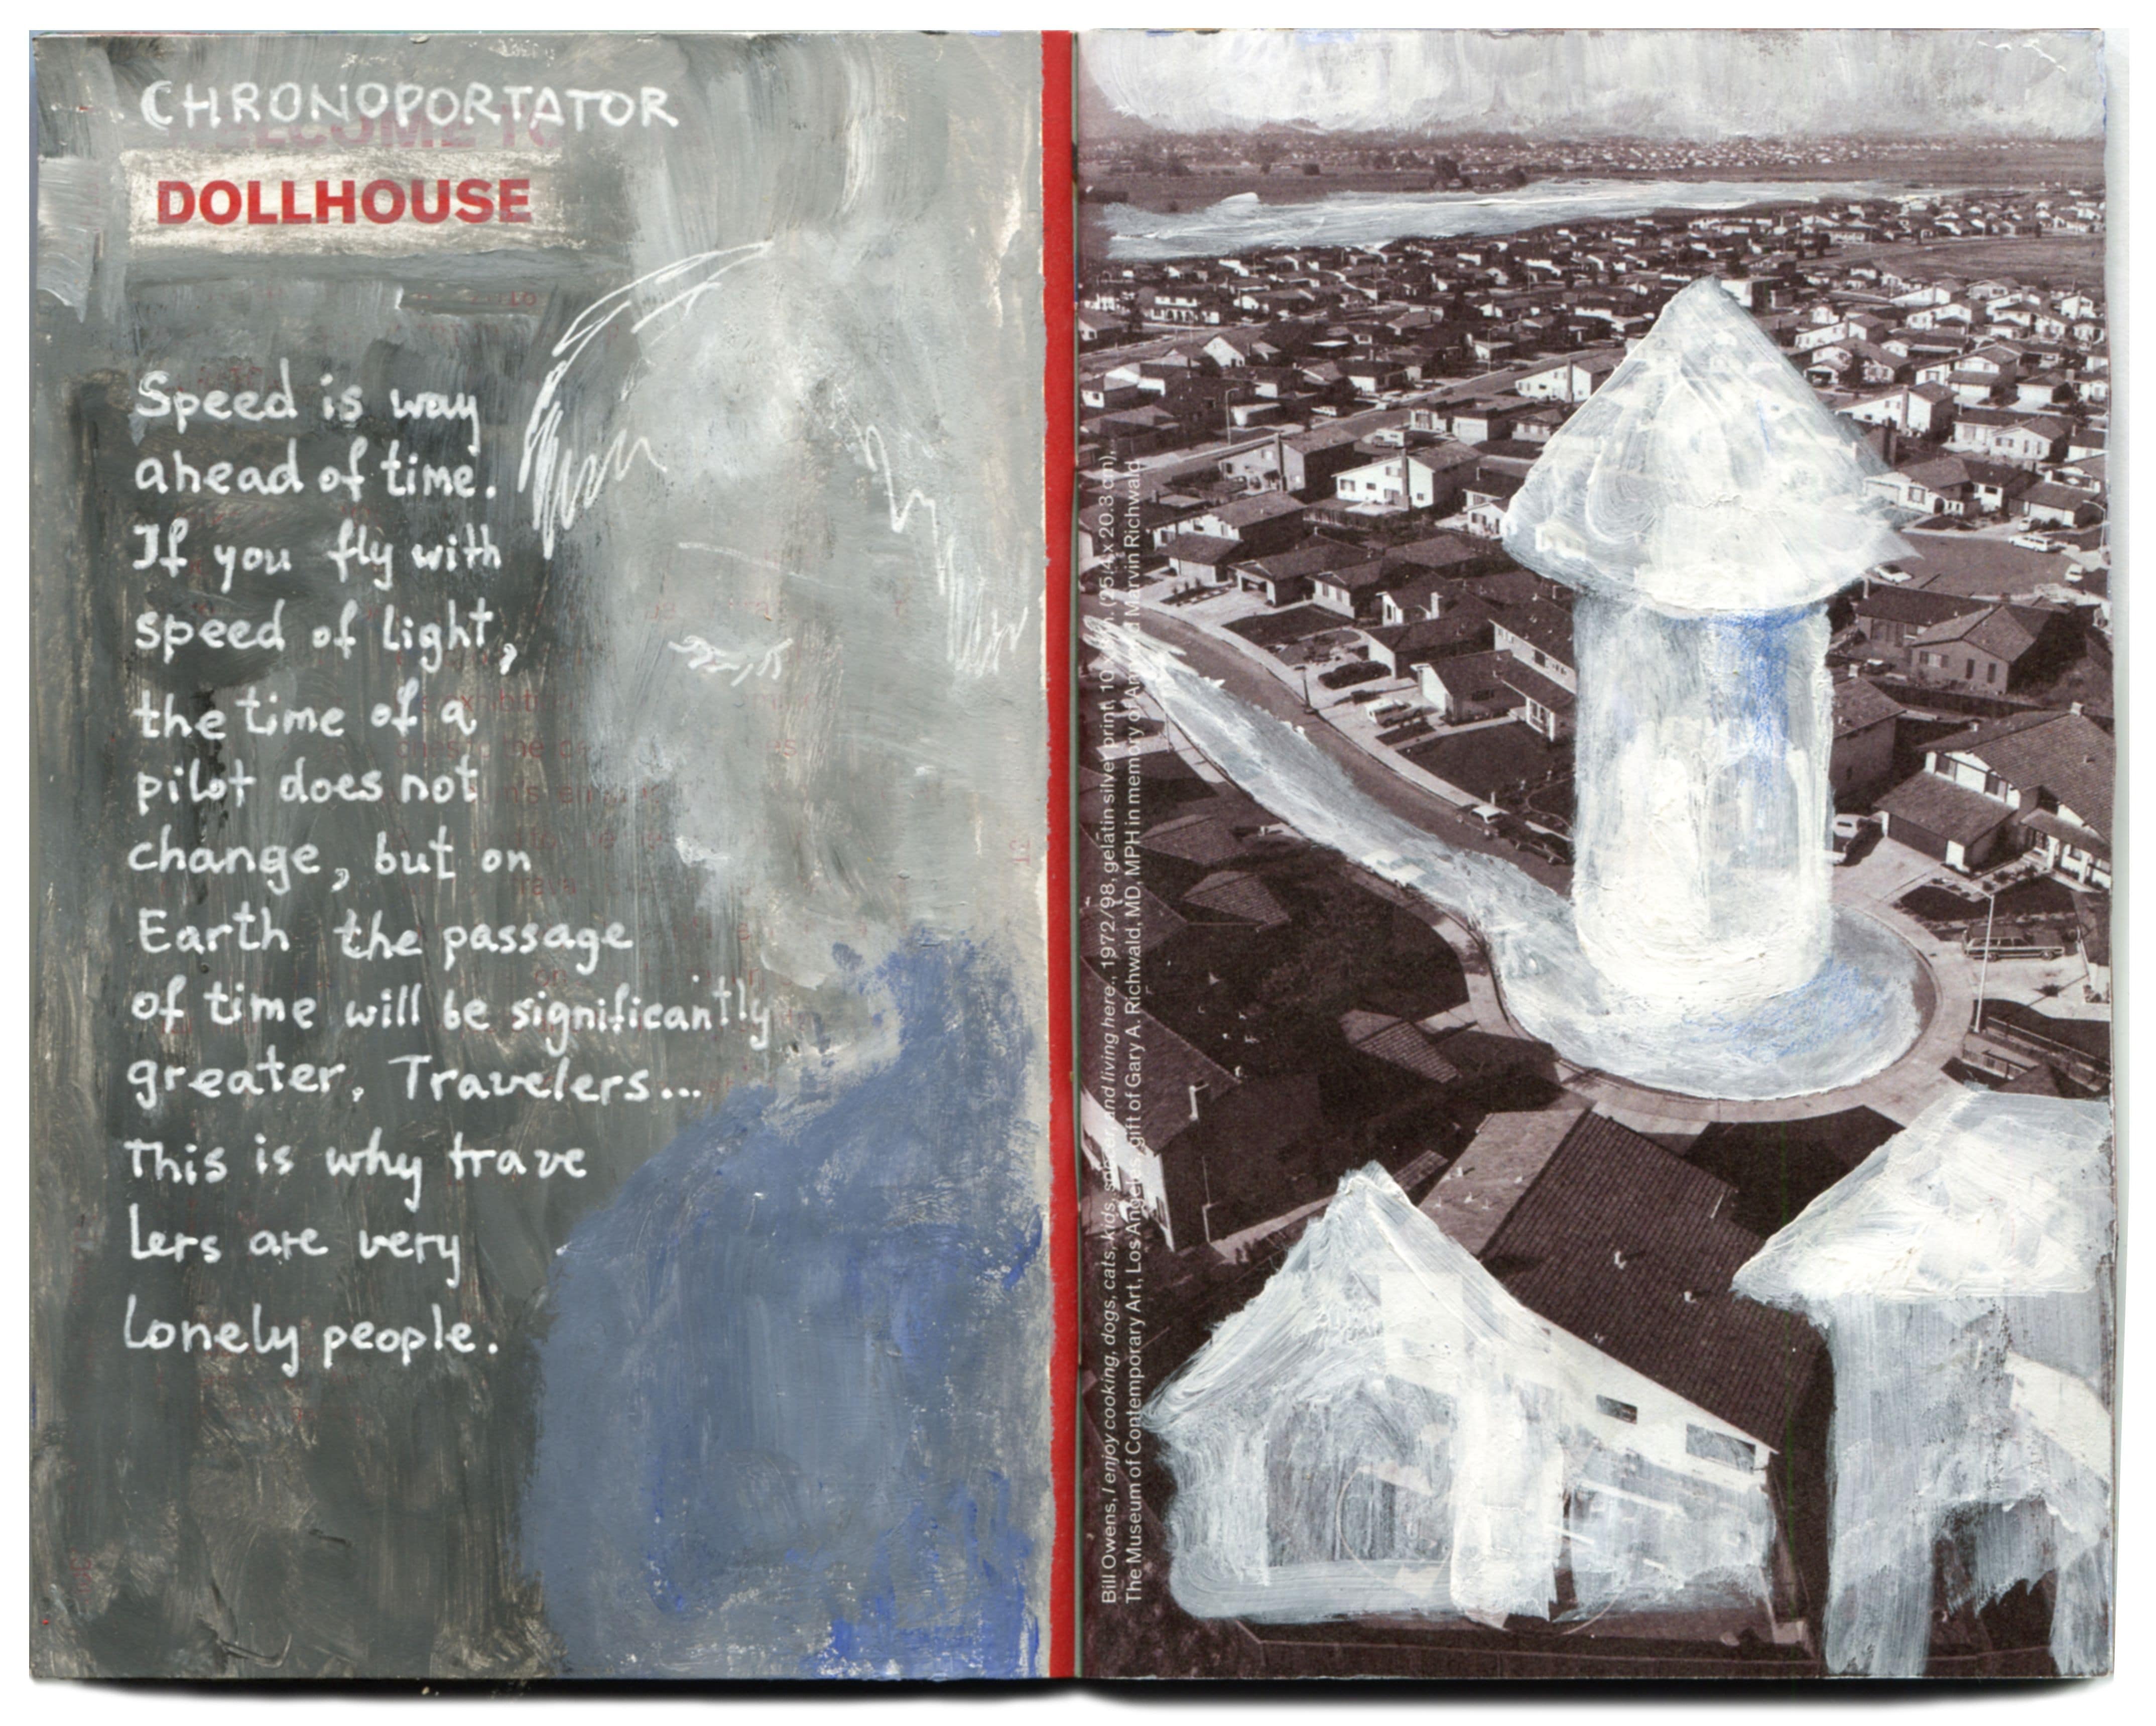 CHRONOPORTATOR
WELCOME TO
DOLLHOUSE
Speed is way
ahead of time.
If you fly with
speed of light,
the time of a
pilot does not
change, but on
Earth the passage
of time will be significantly
greater. Travelers...
This is why trave
lers are very
lonely people.
Bill Owens, I enjoy cooking, dogs, cats, kids, soccer and living here., 1972/98, gelatin silver print, 10 in. (25.4 x 20.3 cm),
The Museum of Contemporary Art, Los Angeles, gift of Gary A. Richwald, MD, MPH in memory of Ann and Marvin Richwald